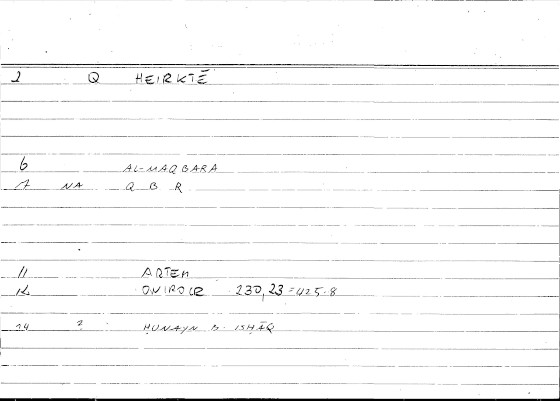 2 Q HEIRKTĒ
6 AL-MAQBARA
7 NA Q B R
11 ARTEM
12 ONIROCR 230,23=425.8
14 ? ḤUNAYN B. ISḤĀQ